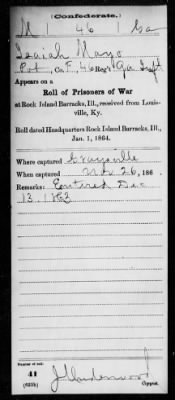 (Confederate.)
M | 46 | Ga
Isaiah Mayo
Pvt, Co. F, 46 Reg't Ga Inft
Appears on a
Roll of Prisoners of War
at Rock Island Barracks, Ill., received from Louis-
ville, Ky.
Roll dated Headquarters Rock Island Barracks, Ill.,
Jan. 1, 1864.
Where captured Graysville
When captured Nov 26, 186 .
Remarks: Entered Dec
13. 1863
Number of roll:
41
(635b)
Copyist.